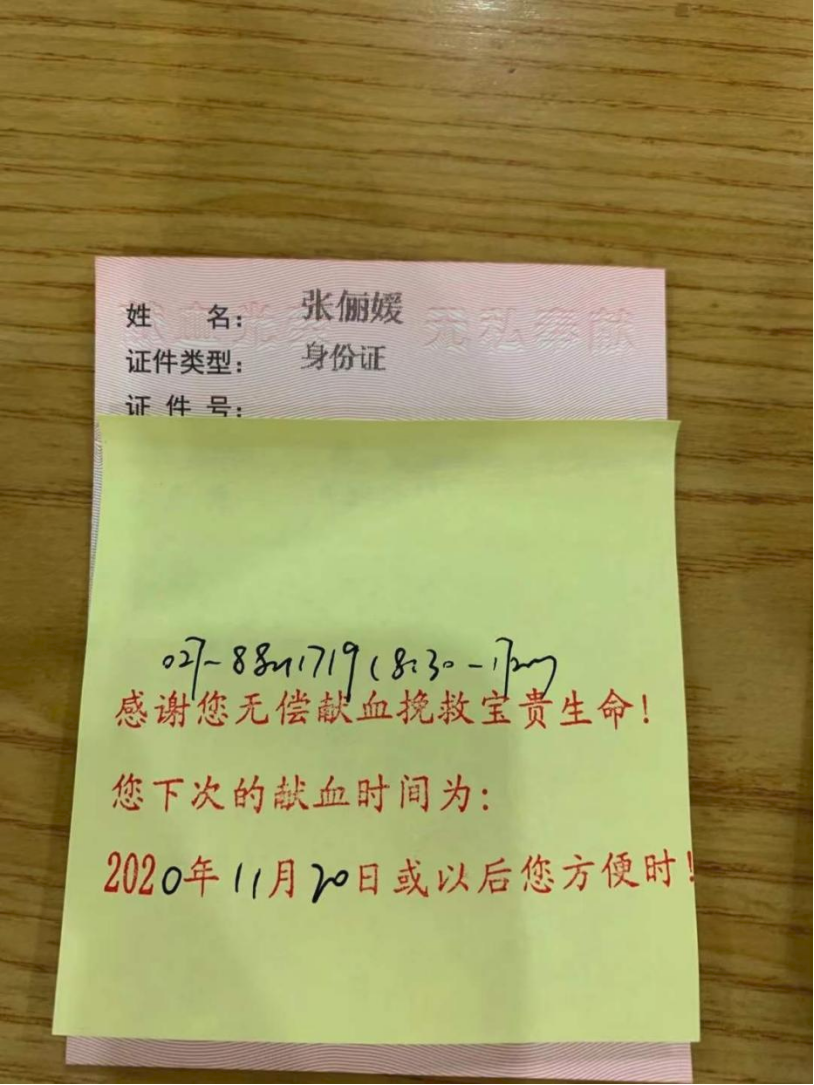 姓 名： 张俪媛
证件类型： 身份证
证 件 号：
无私奉献
感谢您无偿献血挽救宝贵生命！
您下次的献血时间为：
2020年11月20日或以后您方便时！